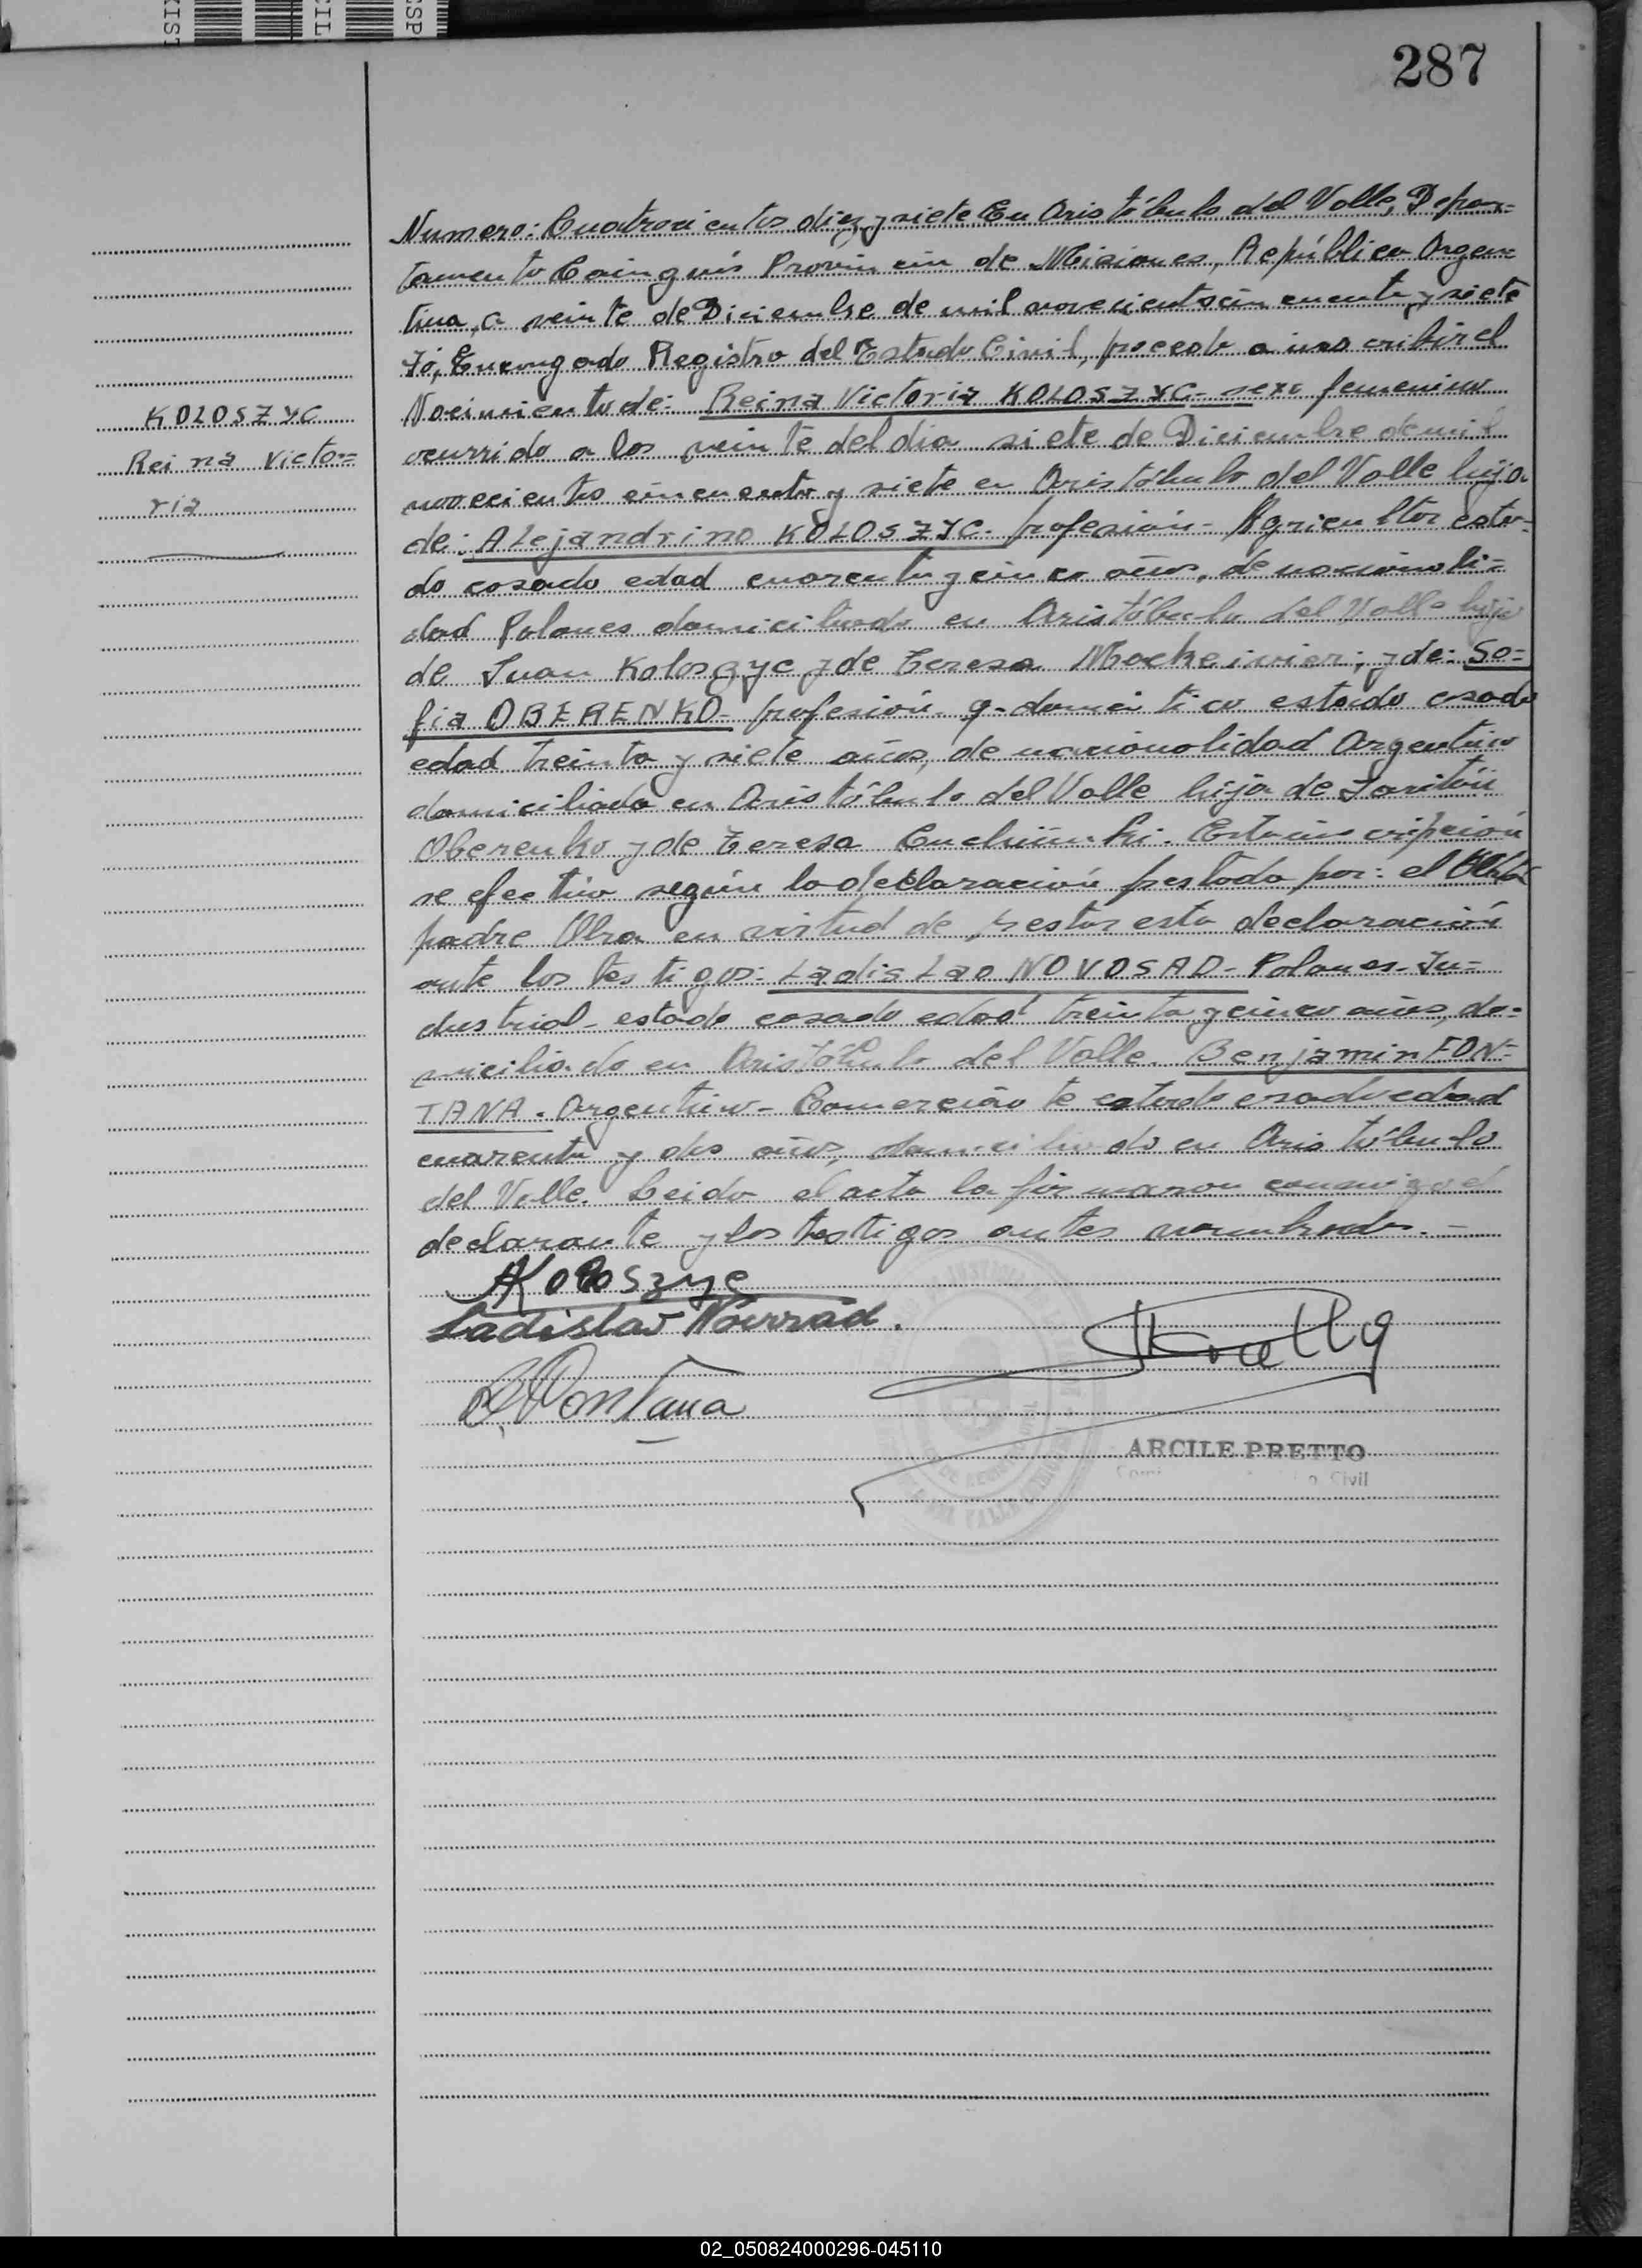 287
KOLOSZYC
Reina Victo=
ria
Numero: Cuatrocientos diez y siete En Aristóbulo del Valle, Depar=
tamento Cainguás Provincia de Misiones, República Argen=
tina, a veinte de Diciembre de mil novecientos cincuenta y siete
Yó, Encargado Registro del Estado Civil, procedo a inscribir el
Nacimiento de: Reina Victoria KOLOSZYC- sexo femenino
ocurrido a las veinte del día siete de Diciembre de mil
novecientos cincuenta y siete en Aristóbulo del Valle hija
de: ALejandrino KOLOSZYC- profesión- Agricultor esta-
do casado edad cuarenta y cinco años, de nacionali=
dad Polaues domiciliado en Aristóbulo del Valle hijo
de Juan Koloszyc y de Teresa; y de: So=
fia OBERENKO- profesión- q. domestico estado casada
edad treinta y siete años, de nacionalidad Argentina
domiciliada en Aristóbulo del Valle hija de
Oberenko y de Teresa. Esta inscripción
se efectúa según la declaración prestada por: el
padre en virtud de prestar esta declaración
ante los testigos: LadisLao NOVOSAD- Polaues- In=
dustrial- estado casado edad treinta y cinco años, do=
miciliado en Aristóbulo del Valle. Benjamin FON=
TANA- Argentino- Comerciante estado casado edad
cuarenta y dos años, domiciliado en Aristóbulo
del Valle. Leida el acta la firmaron conmigo el
declarante y los testigos antes nombrados.-
AKoloszyc
Ladislao
B. Fontana
ARCILE PRETTO
Civil
02_050824000296-045110